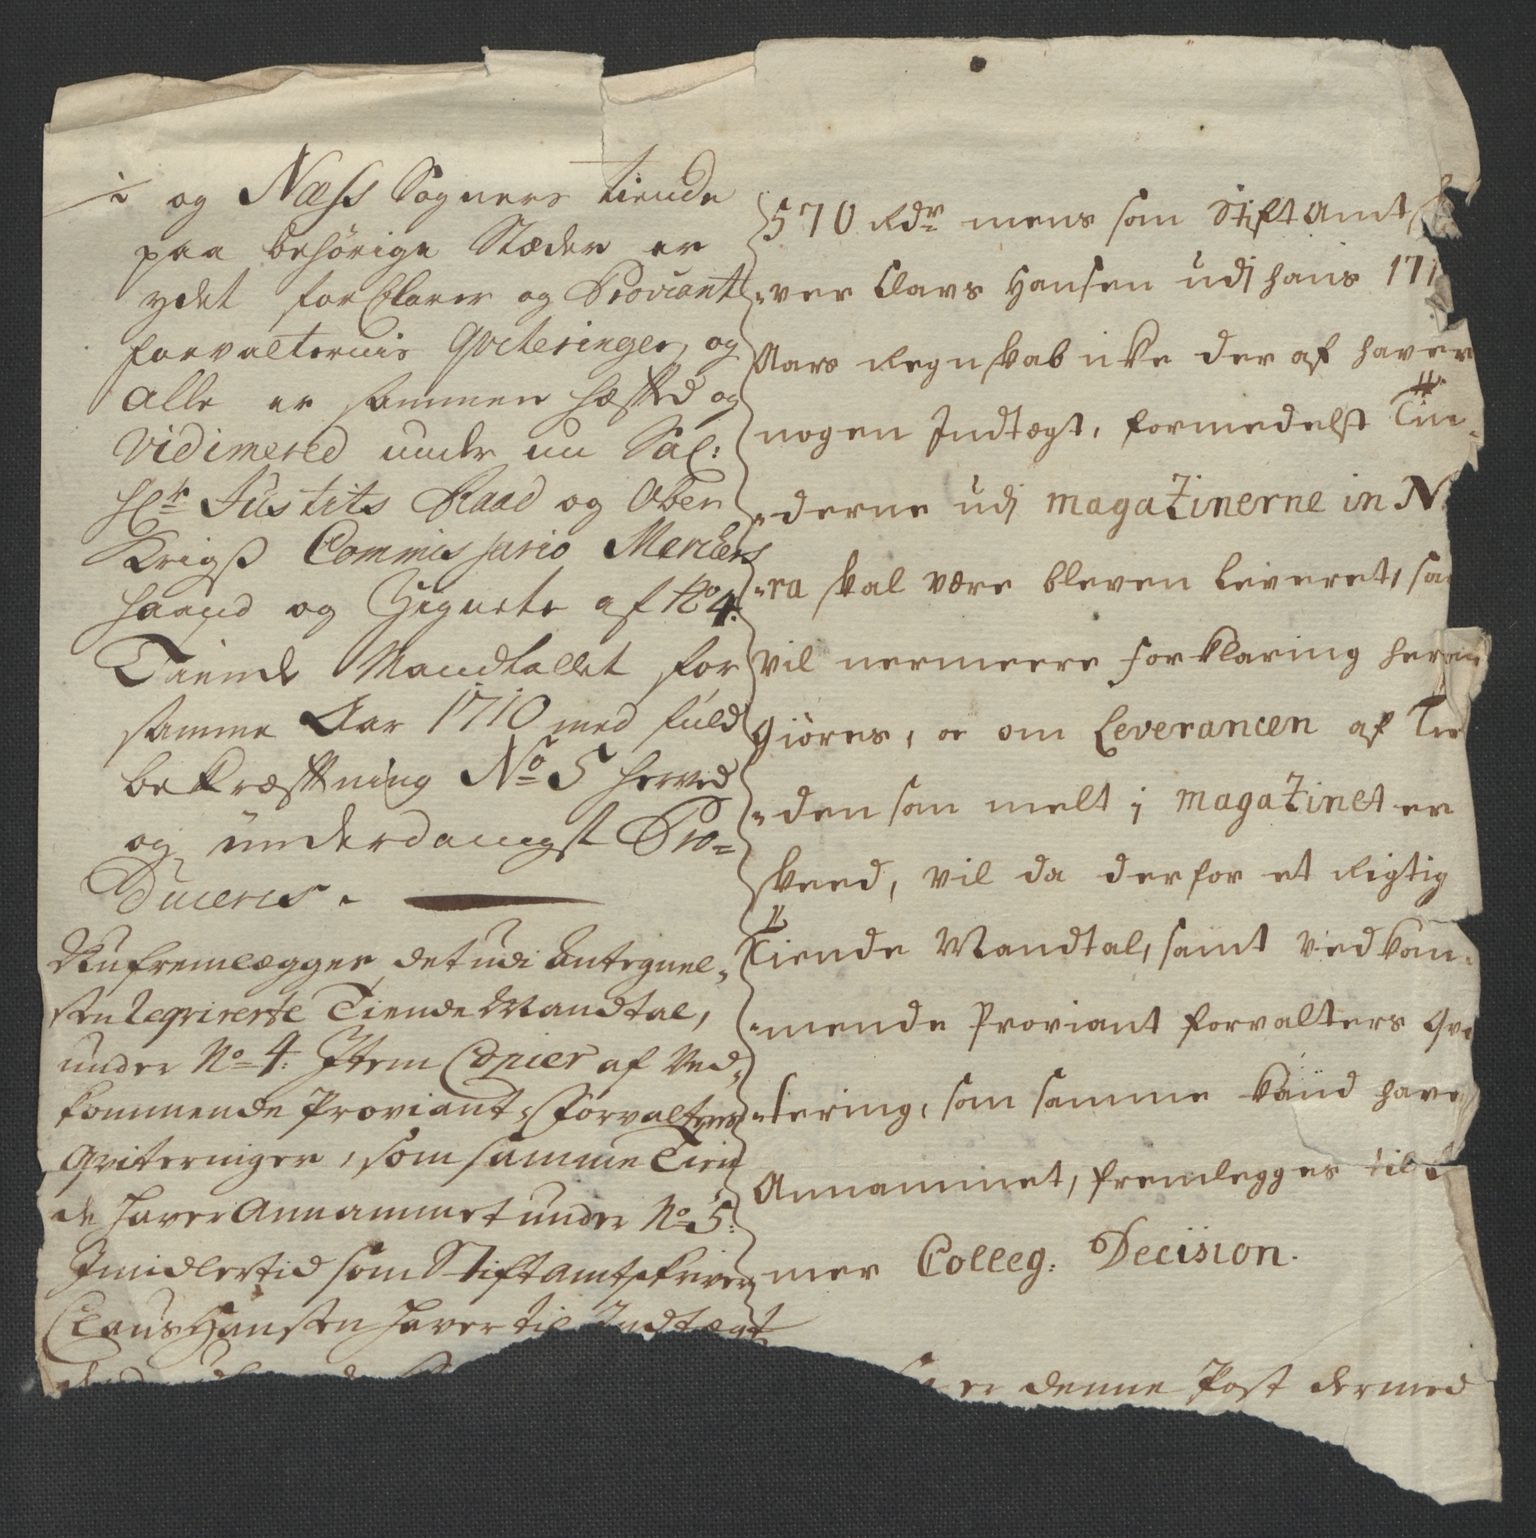 og Næss Sogners tiende
paa behørige Stæder er
ydet forklarer og Proviant
forvalternis Qviteringer og
alle er sammen hæfted og
Vidimered under nu Sal:
Hr: Justits Raad og Ober
Krigs Commissario Merckers
haand og Zignete af No 4.
Tiende Mandtallet for
samme Aar 1710 med fuld
bekræftning No 5 herved
og underdanigst Pro=
duceris.
Nu fremlægges det udi Antegnel,,
sen Reqvirerte Tiende Mandtal,
under No 4: Item Copier af Ved,,
kommende Proviant,, Forvalteres
Qviteringer, som samme Tien
de haver Annammet under No 5:
Imidlertid som Stiftamtskriver
Claus Hansen haver til Indtægt
570 Rdr mens som Stiftamt
,,ver Clavs Hansen udj hans 171
Aars Regnskab icke der af haver
nogen Indtægt, formedelst Tin,,
,,derne udj magazinerne in N
,,ra skal være bleven leveret, saa
vil nermeere forklaring her
giøres, er om Leverancen af Tie
,,den som melt j magazinet er
skeed, vil da derfor et Rigtig
Tiende Mandtal, samt Vedkom,,
,,mende Proviant forvalters Qvi
,,tering, som samme Haud have
Annammet, fremlegges til
mer Colleg: Decision.
er denne Post dermed